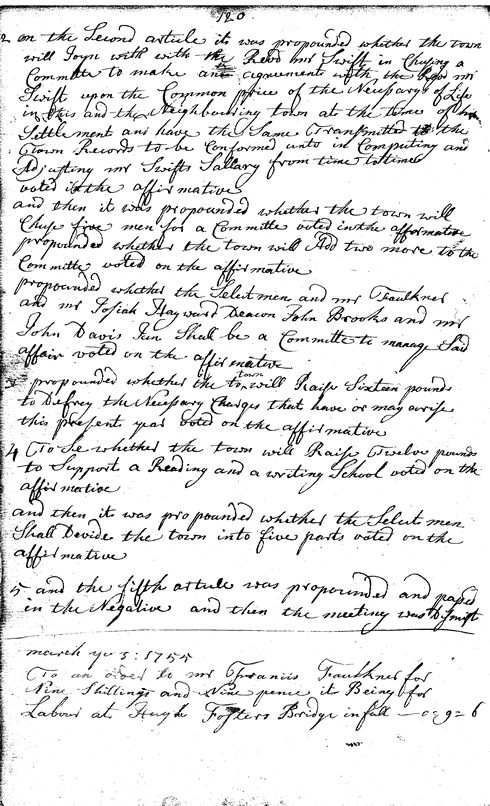 120
2 on the Second article it was propounded whether the town
will Joyn with with the Revd mr Swift in Chusing a
Committe to make an agreement with the Revd mr
Swift upon the Common price of the Necessarys of Life
in this and the Neighbouring town at the time of his
Settlement and have the Same Transmitted to the
Town Records to be Conformed unto in Computing and
Adjusting mr Swifts Sallary from time to time
voted in the affirmative
and then it was propounded whether the town will
Chuse five men for a Committe voted in the affirmative
propounded whether the town will Add two more to the
Committe voted on the affirmative
propounded whether the Selectmen and mr Faulkner
and mr Josiah Hayward Deacon John Brooks and mr
John Davis Jun Shall be a Committe to manage Said
affair voted on the affirmative
3 propounded whether the town will Raise Sixteen pounds
to Defrey the Necessary Charges that have or may arise
this present year voted on the affirmative
4 To Se whether the town will Raise Twelve pounds
to Support a Reading and a writing School voted on the
affirmative
and then it was propounded whether the Select men
Shall Devide the town into five parts voted on the
affirmative
5 and the fifth article was propounded and passed
in the Negative and then the meeting was Dismist
march ye 3: 1755
To an order to mr Francis Faulkner for
Nine Shillings and Nine pence it Being for
Labour at Hugh Fosters Bridge in fall — 0=9=6